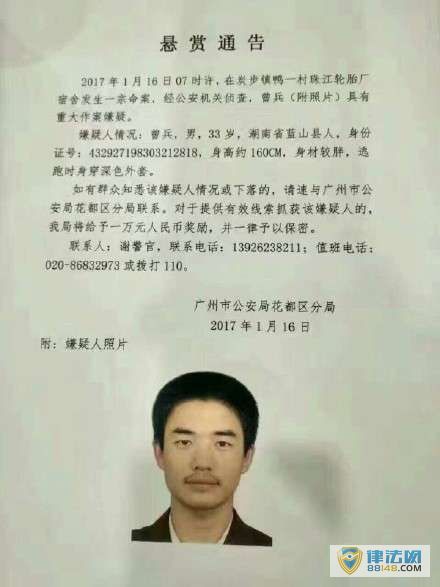 悬赏通告
2017年1月16日07时许，在炭步镇鸭一村珠江轮胎厂
宿舍发生一宗命案，经公安机关侦查，曾兵（附照片）具有
重大作案嫌疑。
嫌疑人情况：曾兵，男，33岁，湖南省蓝山县人，身份
证号：432927198303212818，身高约160CM，身材较胖，逃
跑时身穿深色外套。
如有群众知悉该嫌疑人情况或下落的，请速与广州市公
安局花都区分局联系。对于提供有效线索抓获该嫌疑人的，
我局将给予一万元人民币奖励，并一律予以保密。
联系人：谢警官，联系电话：13926238211；值班电话：
020-86832973或拨打110。
广州市公安局花都区分局
2017年1月16日
附：嫌疑人照片
律法网
88148.COM